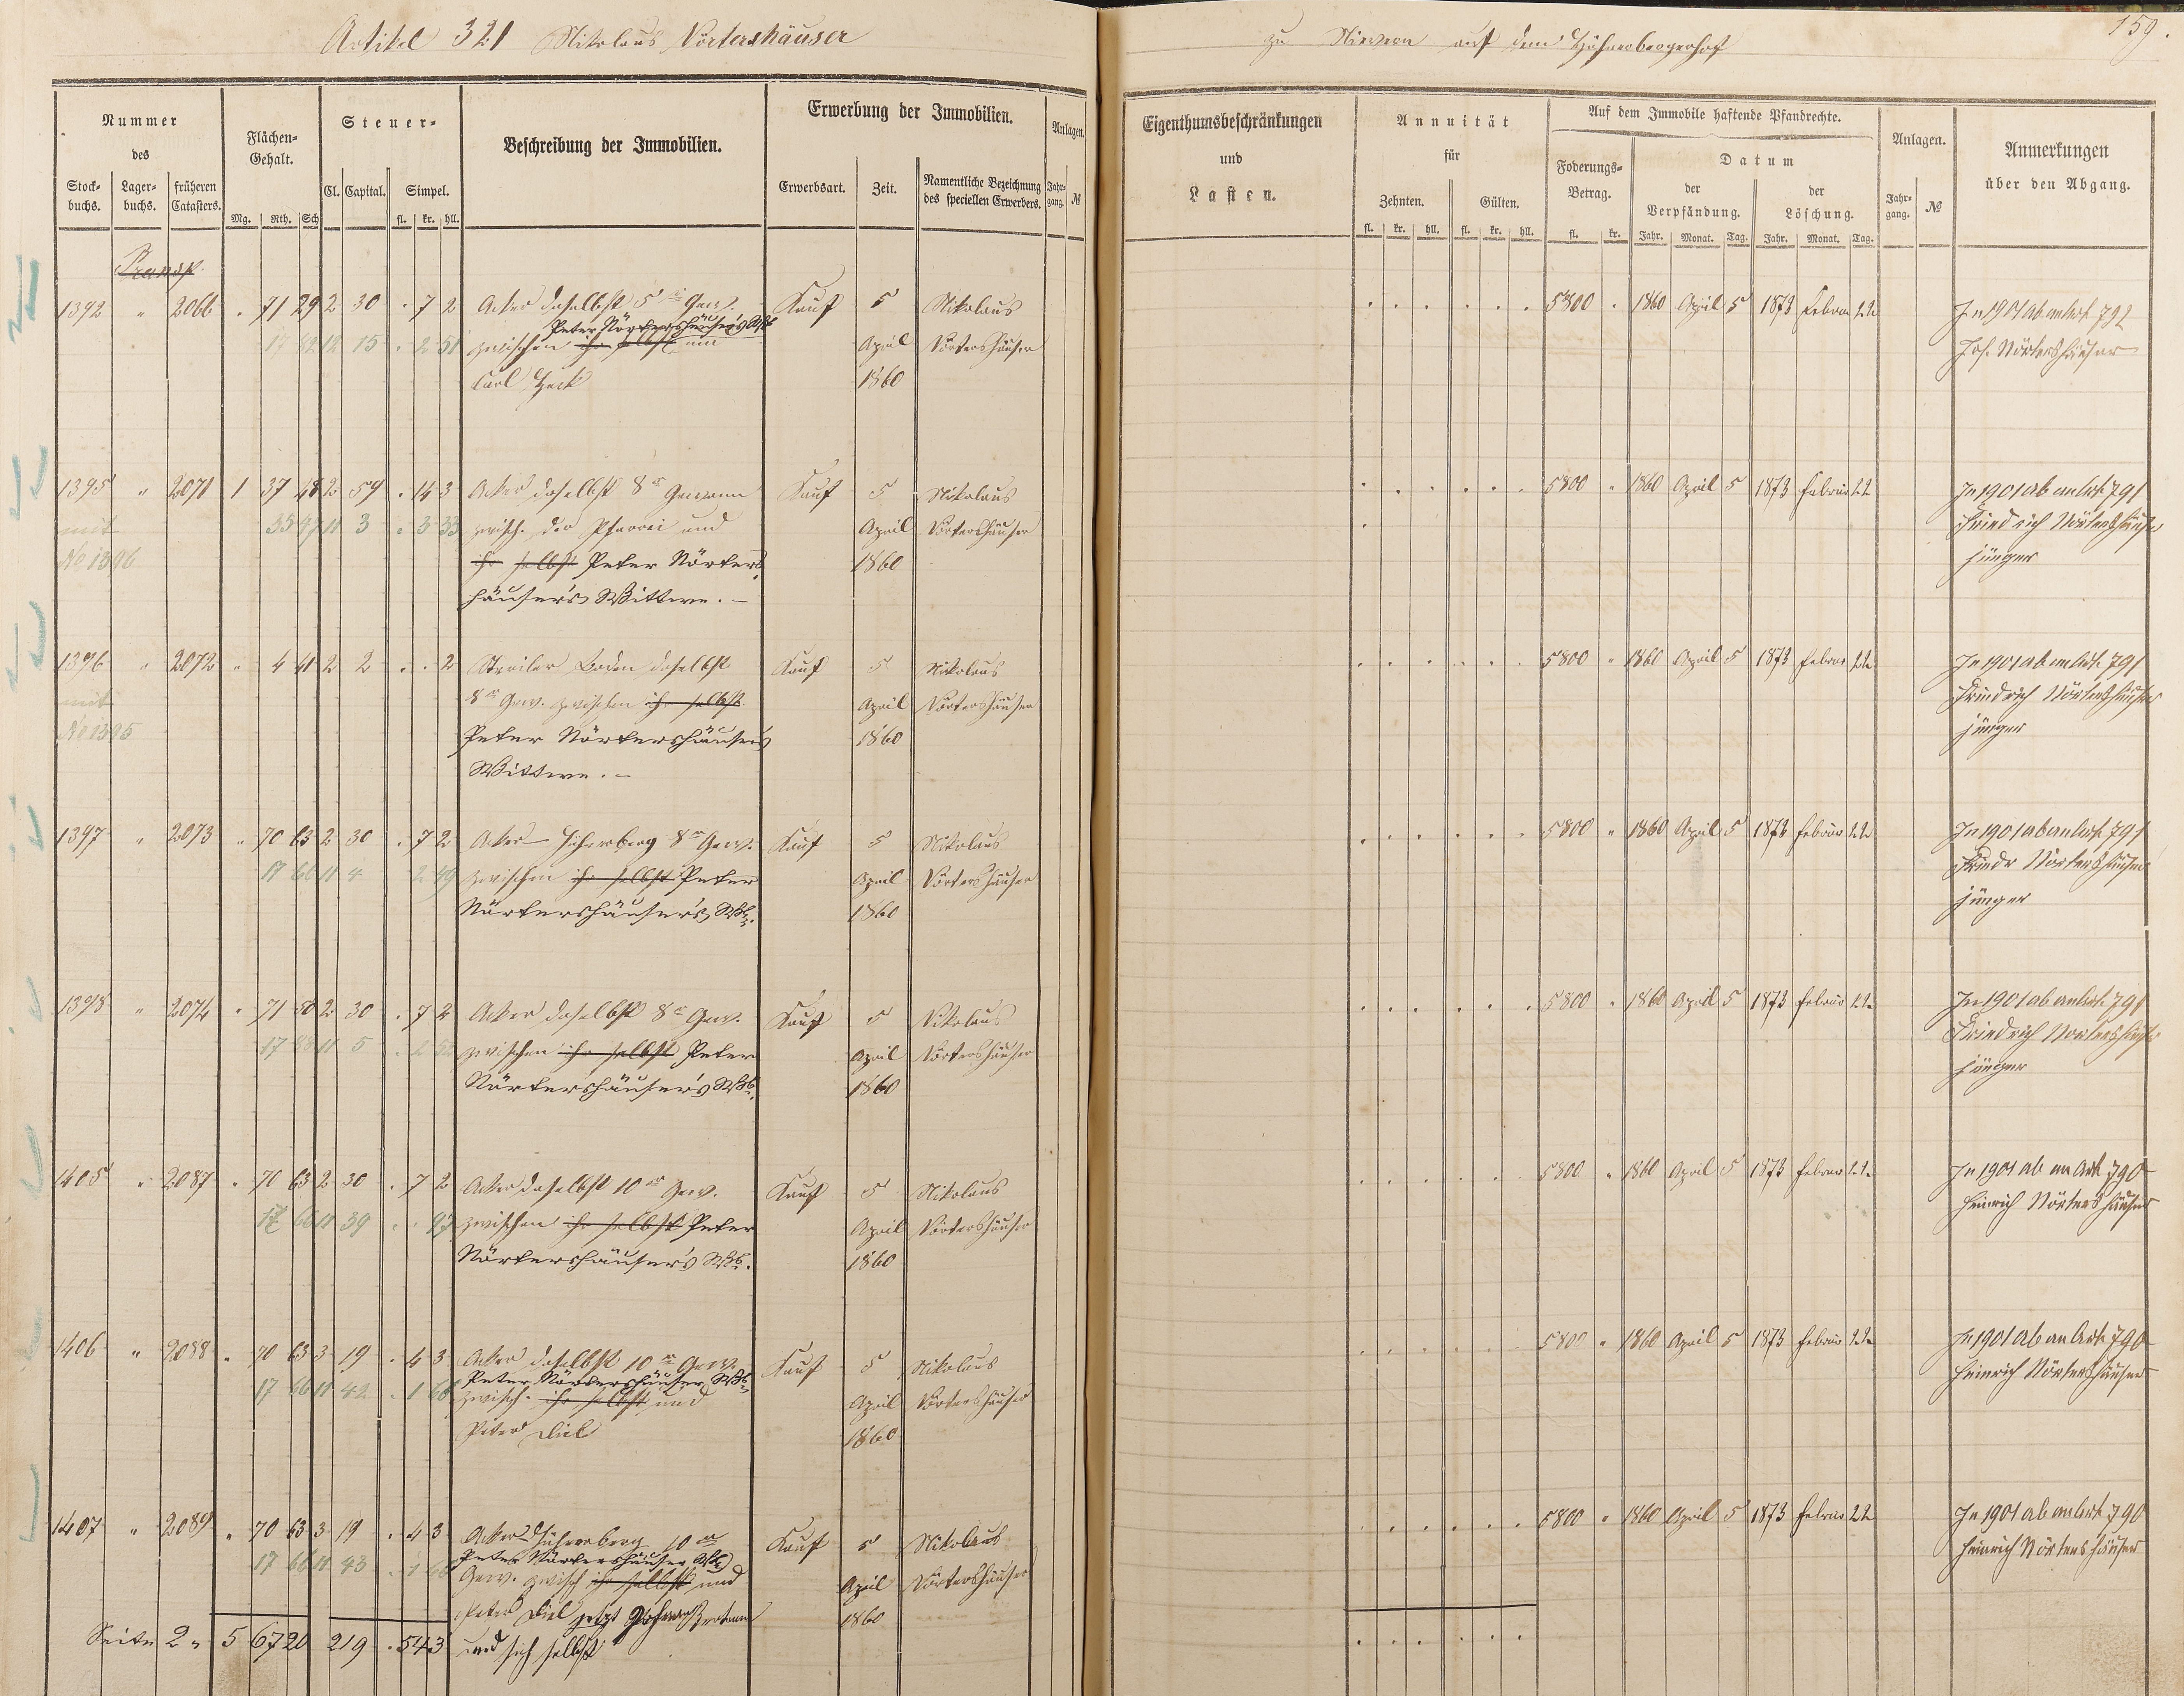 Artikel 321 Nikolaus Nörtershäuser
zu Nievern auf dem Hühnerbergerhof
159.
Nummer des
Stock-buchs. Lager-buchs. früheren Catasters.
Flächen-Gehalt.
Mg. Rth. Sch
Steuer-
Cl. Capital. Simpel.
fl. kr. hll.
Beschreibung der Immobilien.
Erwerbung der Immobilien.
Erwerbsart. Zeit. Namentliche Bezeichnung des speciellen Erwerbers.
Anlagen.
Jahr-gang. №
Eigenthumsbeschränkungen und Lasten.
Annuität für
Zehnten. Gülten.
fl. kr. hll. fl. kr. hll.
Auf dem Immobile haftende Pfandrechte.
Foderungs-Betrag.
fl. kr.
Datum
der Verpfändung. der Löschung.
Jahr. Monat. Tag. Jahr. Monat. Tag.
Anlagen.
Jahr-gang. №
Anmerkungen über den Abgang.
Transp.
1392 " 2066 . 71 29 2 30 . 7 2 Acker daselbst 5r Gew. Kauf 5 Nikolaus 5800 . 1860 April 5 1873 Febru 22 In 1901 ab an Art. 792
Peter Nörtershäuser's Wb
15 . 2 51 zwischen ihr selbst und April Nörtershäuser Jos. Nörtershäuser
Carl Heck 1860
1395 " 2071 1 37 48 2 59 . 14 3 Acker daselbst 8r Gewann Kauf 5 Nikolaus 5800 " 1860 April 5 1873 Februar 22 In 1901 ab an Art. 791
mit 35 97 11 3 . 3 33 zwisch. der Pfarrei und April Nörtershäuser Friedrich Nörtershäuser
No 1396 ihr selbst Peter Nörters- 1860 jünger
häuser's Wittwe. –
1396 " 2072 " 4 41 2 2 . . 2 Weiler Boden daselbst Kauf 5 Nikolaus 5800 " 1860 April 5 1873 Februar 22 In 1901 ab an Art. 791
mit 8r Gew. zwischen ihr selbst April Nörtershäuser Friedrich Nörtershäuser
No 1395 Peter Nörtershäuser's 1860 jünger
Wittwe. –
1397 " 2073 " 70 63 2 30 . 7 2 Acker Hühnerberg 8r Gew. Kauf 5 Nikolaus 5800 " 1860 April 5 1873 Februar 22 In 1901 ab an Art. 791
17 66 11 4 2 49 zwischen ihr selbst Peter April Nörtershäuser Friedr Nörtershäuser
Nörtershäuser's Wb. 1860 jünger
1398 " 2074 " 71 50 2 30 . 7 2 Acker daselbst 8r Gew. Kauf 5 Nikolaus 5800 " 1860 April 5 1873 Februar 22 In 1901 ab an Art. 791
17 11 5 zwischen ihr selbst Peter April Nörtershäuser Friedrich Nörtershäuser
Nörtershäuser's Wb. 1860 jünger
1405 " 2087 " 70 63 2 30 . 7 2 Acker daselbst 10r Gew. Kauf 5 Nikolaus 5800 " 1860 April 5 1873 Februar 22 In 1901 ab an Art. 790
17 66 11 39 zwischen ihr selbst Peter April Nörtershäuser Heinrich Nörtershäuser
Nörtershäuser's Wb. 1860
1406 " 2088 " 70 63 3 19 . 4 3 Acker daselbst 10r Gew. Kauf 5 Nikolaus 5800 " 1860 April 5 1873 Februar 22 In 1901 ab an Art. 790
Peter Nörtershäuser Wb
17 66 11 42 . 1 66 zwisch. ihr selbst und April Nörtershäuser Heinrich Nörtershäuser
Peter Diel 1860
1407 " 2089 " 70 63 3 19 . 4 3 Acker Hühnerberg 10r Kauf 5 Nikolaus 5800 " 1860 April 5 1873 Februar 22 In 1901 ab an Art. 790
Peter Nörtershäuser Wb
17 66 11 43 . 1 66 Gew. zwisch ihr selbst und April Nörtershäuser Heinrich Nörtershäuser
Peter Diel jetzt 1860
Seite 2 " 5 67 20 219 . 54 3 und sich selbst